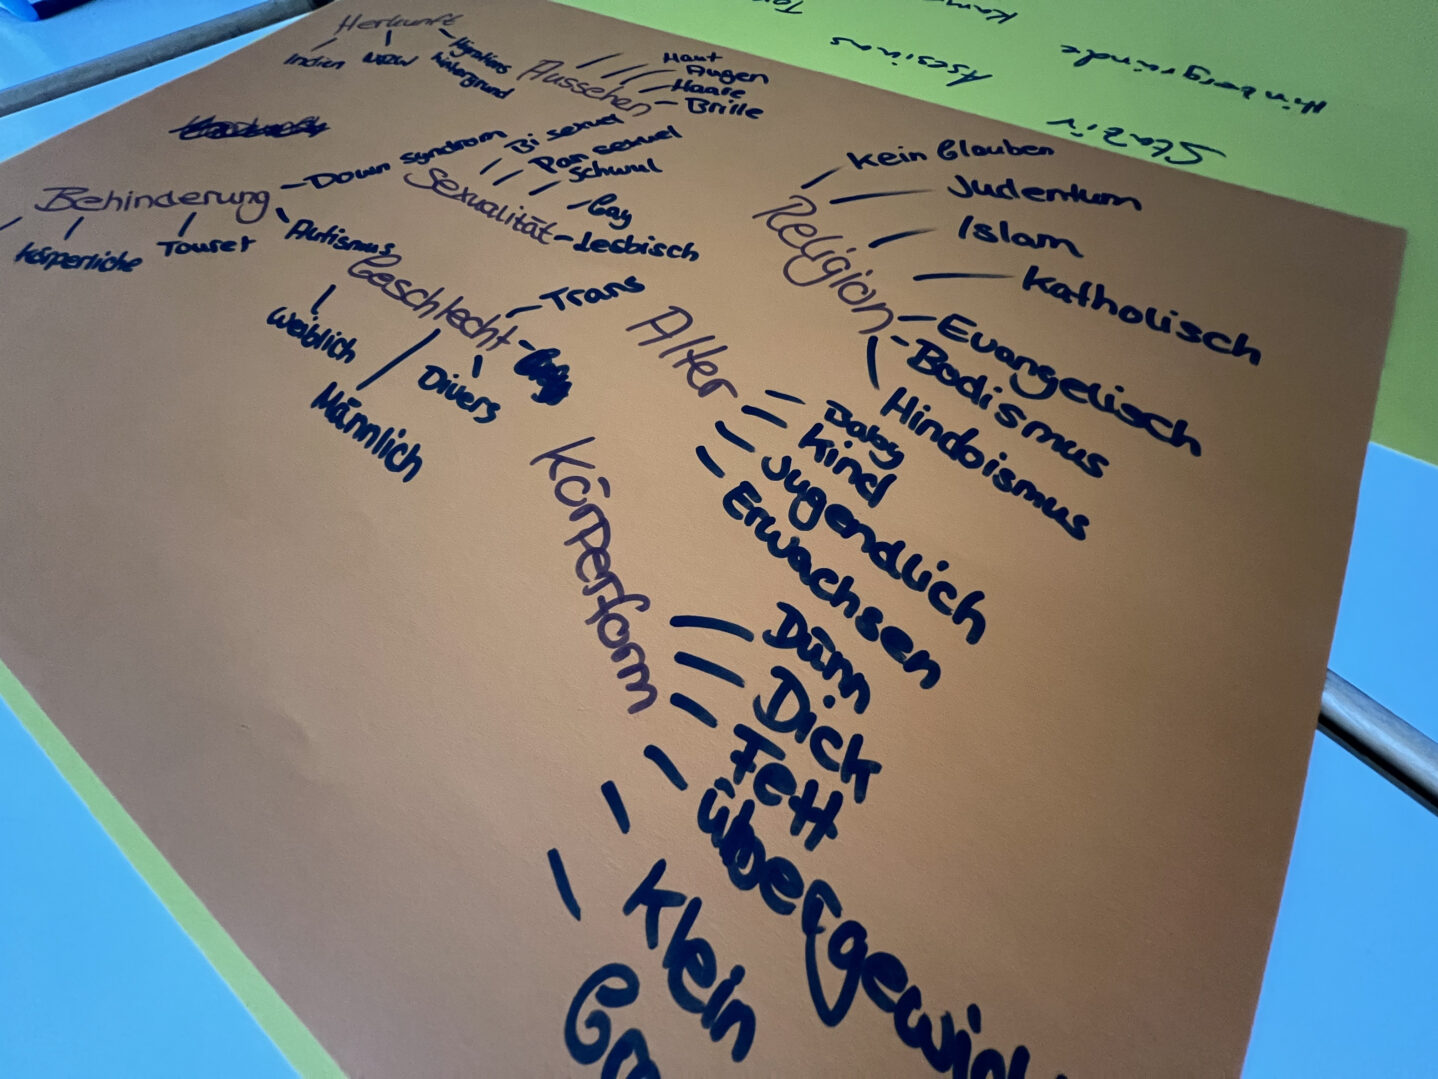 Herkunft
Indien
NRW
Migrations
hintergrund
Aussehen
Haut
Augen
Haare
Brille
Behinderung
Down Syndrom
Autismus
Touret
Körperliche
Sexualität
Bi sexuel
Pan sexuel
Schwul
Gay
Lesbisch
Geschlecht
Trans
Divers
Männlich
Weiblich
Religion
Kein Glauben
Judentum
Islam
Katholisch
Evangelisch
Bodismus
Hindoismus
Alter
Baby
Kind
Jugendlich
Erwachsen
Körperform
Dünn
Dick
Fett
Übergewich
Klein
Stativ